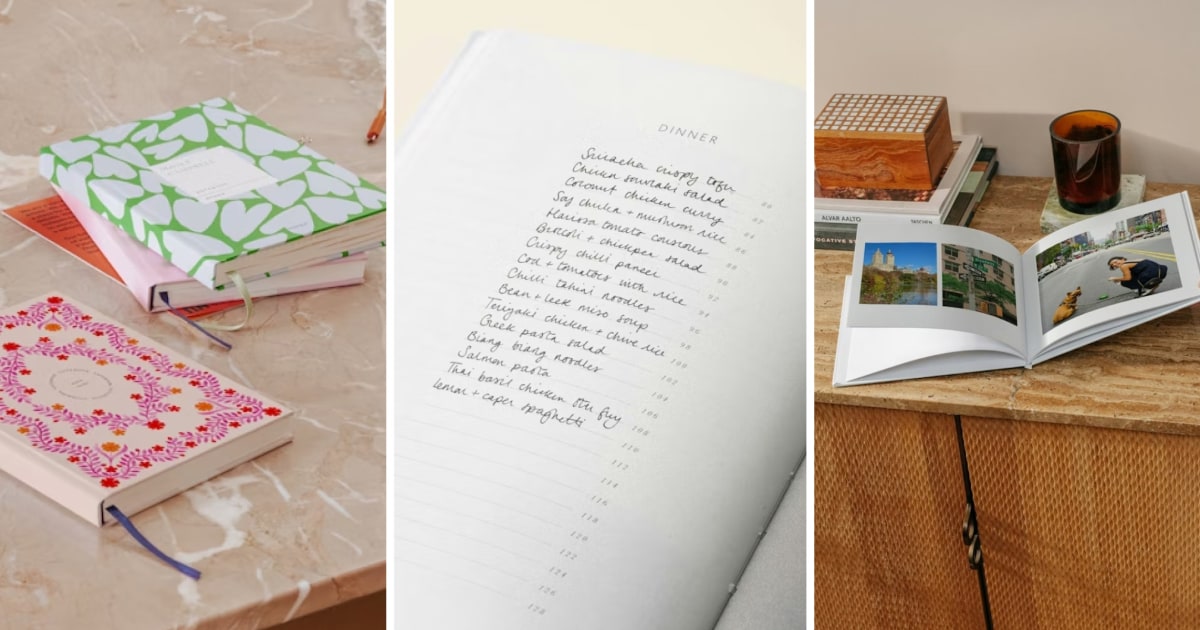 DINNER
Sriracha crispy tofu
Chicken souvlaki salad
Coconut chicken curry 84
Soy chicken + mushroom rice 86
Harissa tomato couscous 88
Broccoli + chickpea salad 90
Crispy chilli paneer 92
Cod + tomatoes with rice 94
Chilli tahini noodles 96
Bean + leek miso soup 98
Teriyaki chicken + chive rice 100
Greek pasta salad 102
Biang biang noodles 104
Salmon pasta 106
Thai basil chicken stir fry 108
Lemon + caper spaghetti 110
112
114
116
118
120
122
124
126
128
ALVAR AALTO TASCHEN